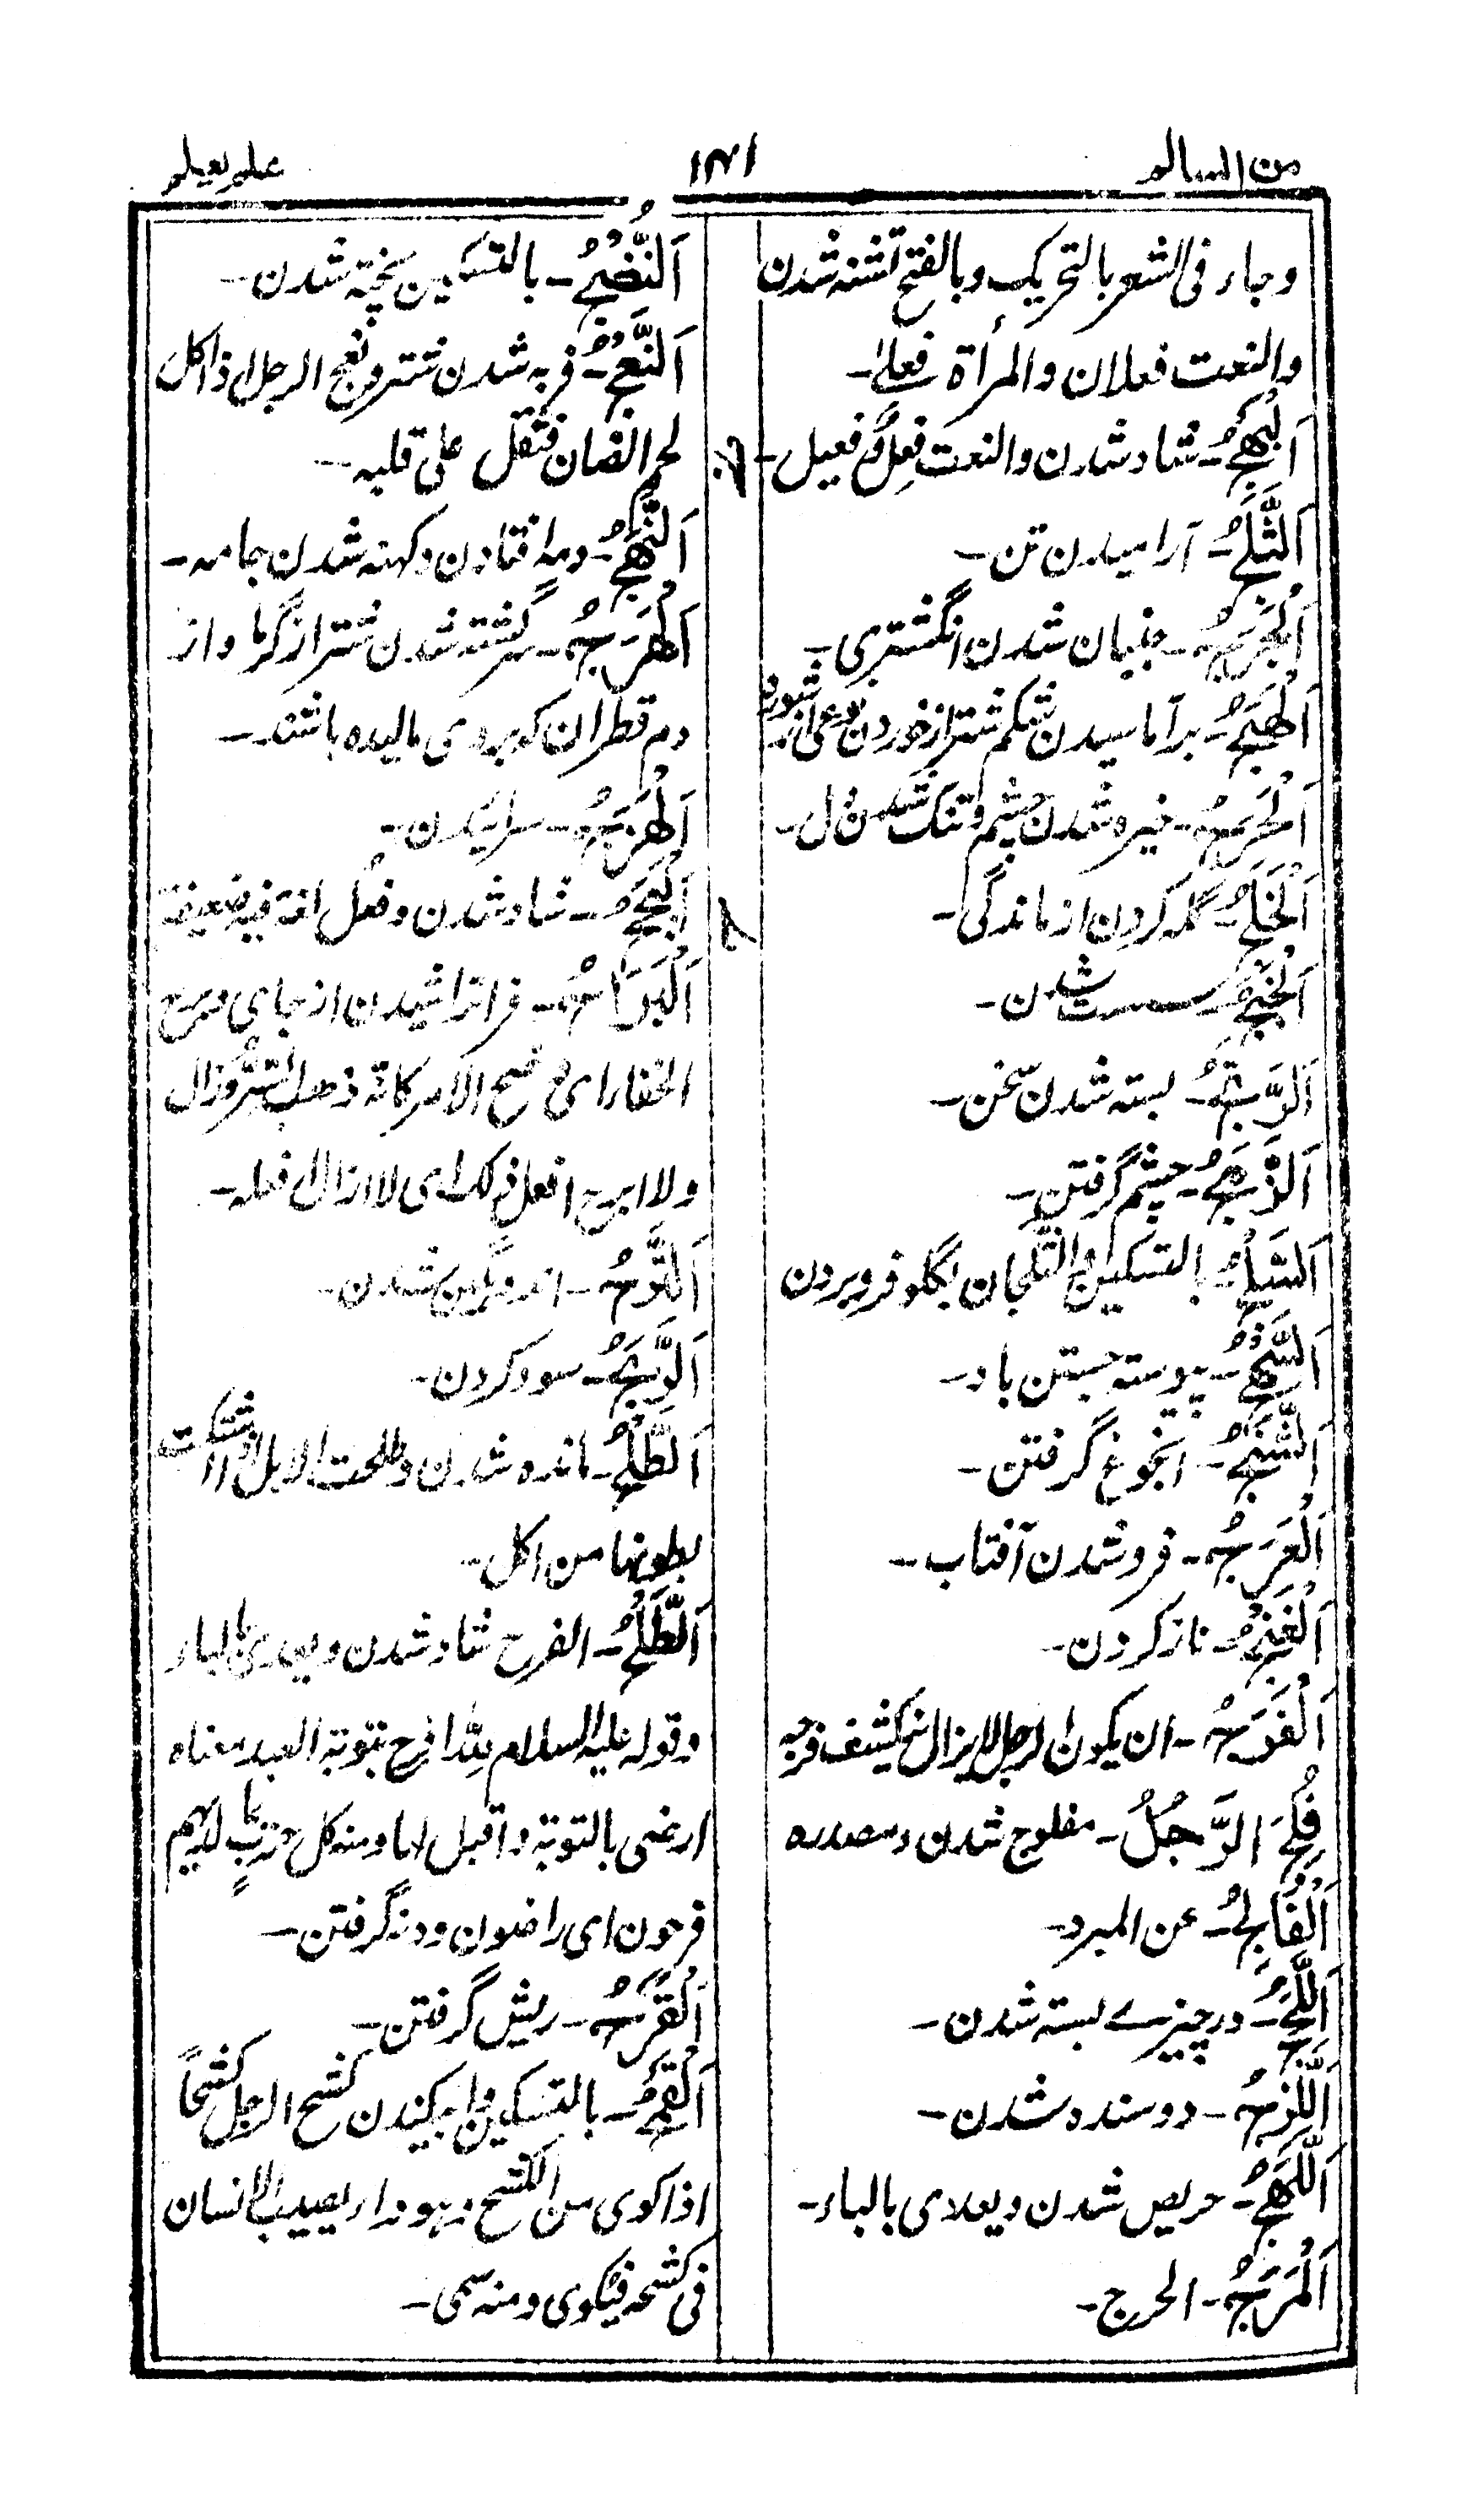 من السالم
١٣١
علم یعلم
وجاء فی الشعر بالتحریک وبالفتح تشنه شدن
والنعت فعلان والمرأة فعلی۔
اَلْبَهَجُ۔ شاد شدن والنعت فَعِلٌ و فعیل۔
ج
اَلثَّلَجُ۔ آرامیدن تن۔
اَلْجَرَجُ۔ جنبان شدن انگشتری۔
اَلْحَبَجُ۔ برآماسیدن شکم شتر از خوردن نوعی از شوره
اَلْحَرَجُ۔ خیره شدن چشم و تنگ شدن دل۔
اَلْخَلَجُ۔ گله کردن از ماندگی۔
سست شدن۔
اَلرَّتَجُ۔ بسته شدن سخن۔
چشم گرفتن۔
بالتسکین بگلو فرو بردن
پیوسته جستن باد۔
اَلشَّنَجُ۔ انجوغ گرفتن۔
اَلْعَرَجُ۔ فرو شدن آفتاب۔
اَلْغَنَجُ۔ ناز کردن۔
اَلْفَرَجُ۔ ان یکون الرجل لایزال ینکشف فرجه
فُلِجَ الرَّجُلُ۔ مفلوج شدن ومصدره
اَلْفَالِجُ۔ عن المبرد۔
در چیزے بسته شدن۔
اَللَّزَجُ۔ دوسنده شدن۔
اَللَّهَجُ۔ حریص شدن ویعدی بالباء۔
اَلْمَرَجُ۔ الحرج۔
اَلنُّضْجُ۔ بالتسکین پخته شدن۔
اَلنَّعَجُ۔ فربه شدن شتر ونعج الرجل اذا اکل
لحم الضان فثقل علی قلبه۔
اَلنَّهَجُ۔ دمه افتادن و کهنه شدن جامه۔
اَلْهَرَجُ۔ سرگشته شدن شتر از گرما و از
دم قطران که بر وی مالیده باشند۔
اَلْهَزَجُ۔ سرائیدن۔
ح
اَلْبَجَحُ۔ شاد شدن وفعل لغة فیه ضعیفة
اَلْبَرَاحُ۔ فراتر شدن از جای وبرح
الخفاء ای وضح الامر کانه ذهب الستر وزال
ولا ابرح افعل ذلک ای لا ازال افعله۔
اَلتَّرَحُ۔ اندوهگین شدن۔
اَلرِّبْحُ۔ سود کردن۔
اَلطَّلَحُ۔ مانده شدن وطلحت الابل اذا اشتکت
بطونها من اکل۔
الفرح شاد شدن ویعدی بالباء
وقوله علیه السلام لله افرح بتوبة العبد معناه
ارضی بالتوبة واقبل لها ومنه کل حزب بما لدیهم
فرحون ای راضون ودنه گرفتن۔
اَلْقَرَحُ۔ ریش گرفتن۔
اَلْقَمْحُ۔ بالتسکین کشح الرجل کشحاً
اذا کوی من الکشح وهو داء یصیب الانسان
فی کشحه فیکوی ومنه سمی۔